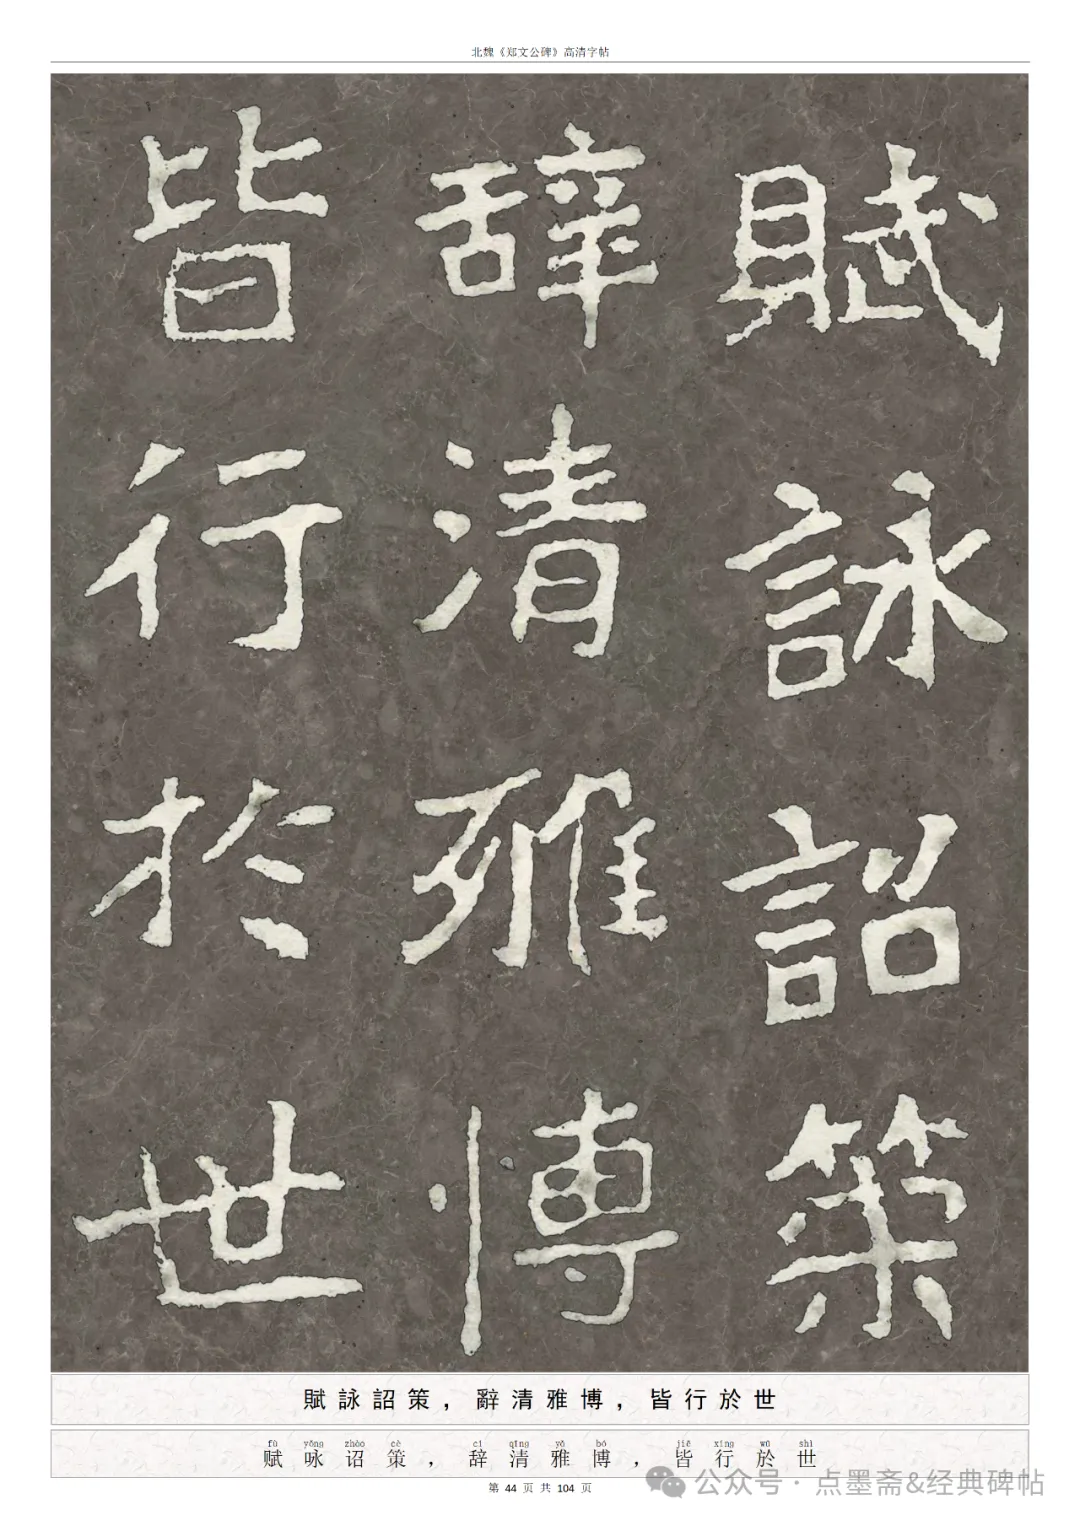 北魏《郑文公碑》高清字帖
賦詠詔策
辤清雅博
皆行於世
賦詠詔策，辭清雅博，皆行於世
fù yǒng zhào cè cí qīng yǎ bó jiē xíng wū shì
赋咏诏策，辞清雅博，皆行於世
第 44 页 共 104 页
公众号 · 点墨斋&经典碑帖